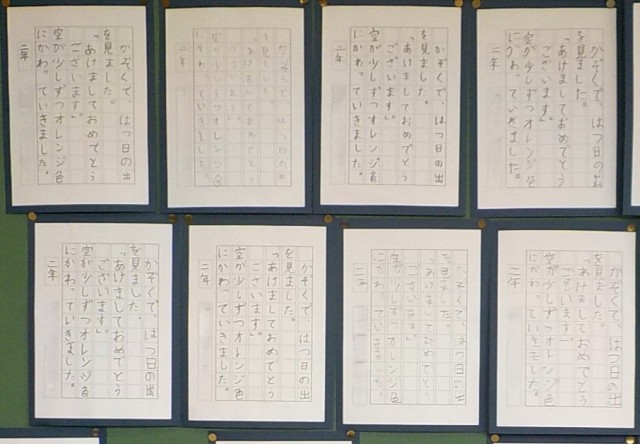 かぞくで、はつ日の出
を見ました。
「あけましておめでとう
ございます」
空が少しずつオレンジ色
にかわっていきました。
二年
かぞくで、はつ日の出
を見ました。
「あけましておめでとう
ございます」
空が少しずつオレンジ色
にかわっていきました。
二年
かぞくで、はつ日の出
を見ました。
「あけましておめでとう
ございます」
空が少しずつオレンジ色
にかわっていきました。
二年
かぞくで、はつ日のお
を見ました。
「あけましておめでとう
ございます」
空が少しずつオレンジ色
にかわっていきました。
二年
かぞくで、はつ日の出
を見ました。
「あけましておめでとう
ございます」
空が少しずつオレンジ色
にかわっていきました。
二年
かぞくで、はつ日の出
を見ました。
「あけましておめでとう
ございます」
空が少しずつオレンジ色
にかわっていきました。
二年
かぞくで、はつ日の出
を見ました。
「あけましておめでとう
ございます」
空が少しずつオレンジ色
にかわっていきました。
二年
かぞくで、はつ日の出
を見ました。
「あけましておめでとう
ございます」
空が少しずつオレンジ色
にかわっていきました。
二年